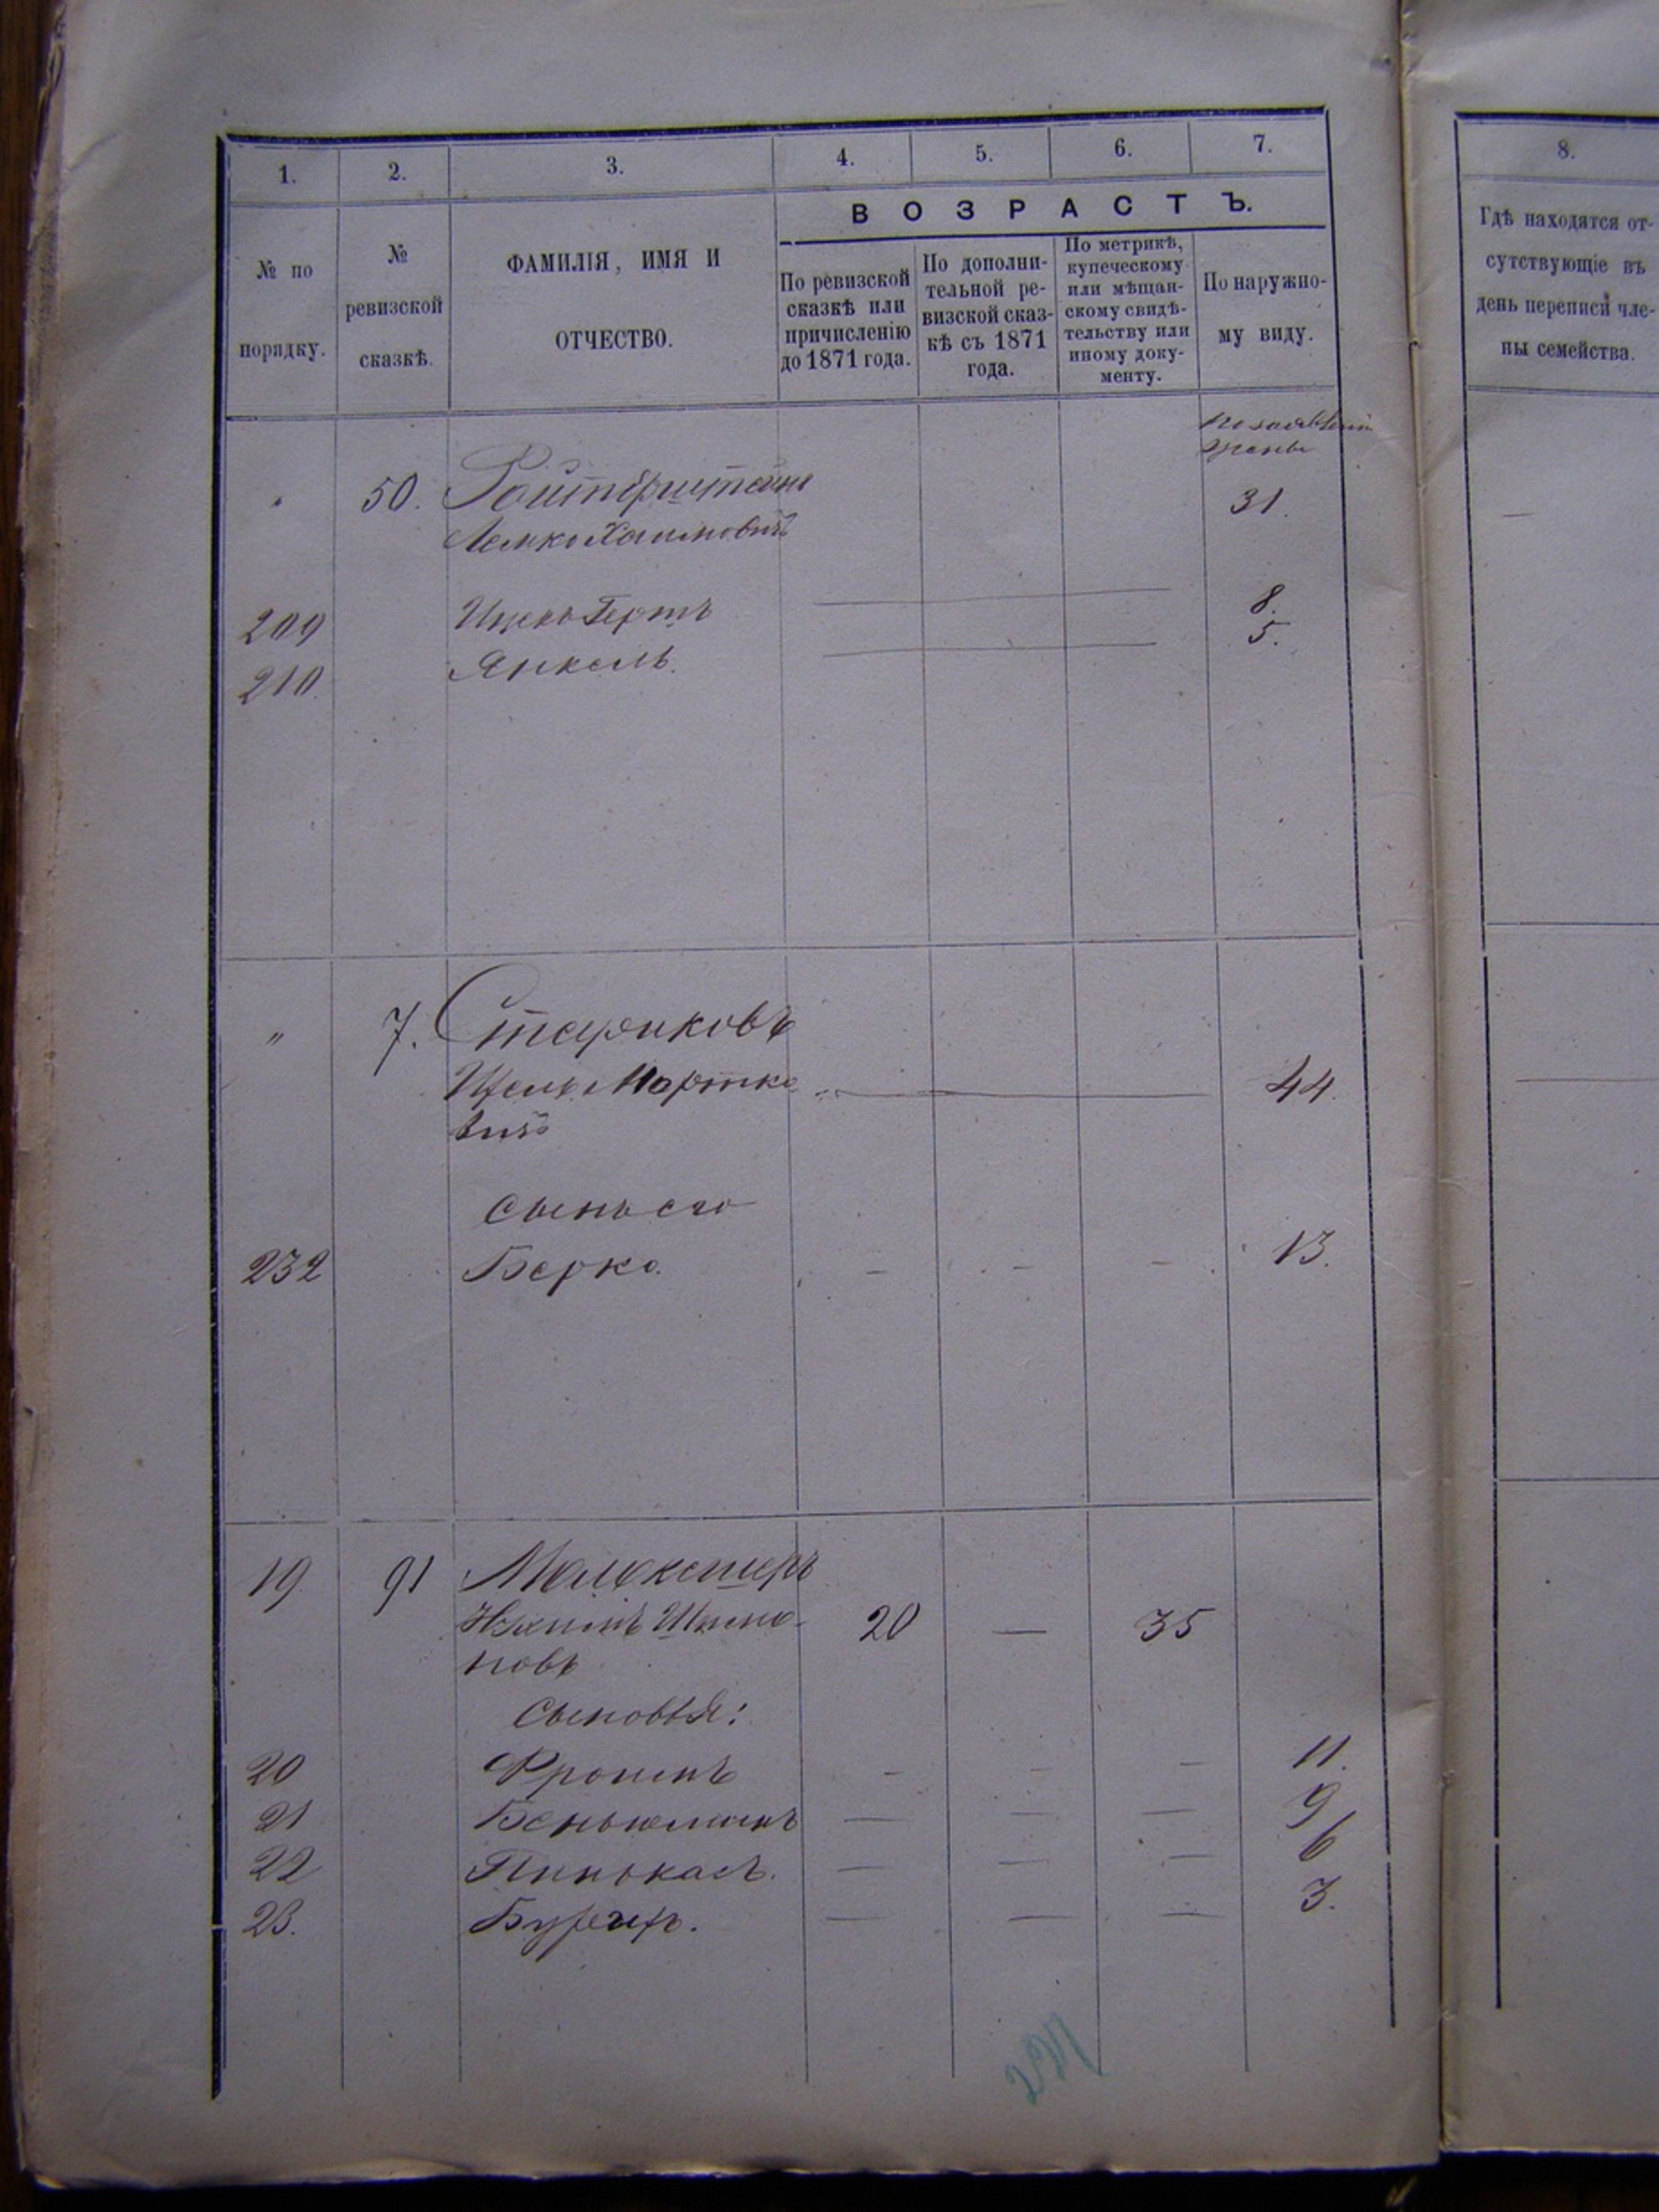 1. 2. 3. 4. 5. 6. 7. 8.
ВОЗРАСТЪ.
№ по порядку.
№ ревизской сказкѣ.
ФАМИЛІЯ, ИМЯ И ОТЧЕСТВО.
По ревизской сказкѣ или причисленію до 1871 года.
По дополнительной ревизской сказкѣ съ 1871 года.
По метрикѣ, купеческому или мѣщанскому свидѣтельству или иному документу.
По наружному виду.
Гдѣ находятся отсутствующіе въ день переписи члены семейства.
50. Ройтерштейнъ 31.
Лемко Хаимовичъ
209 Ицко Гершъ — 8.
210. Янкель. — 5.
" 7. Стариковъ
Мортко — 44.
вичъ
Сынъ его
232 Берко. - - - 13.
19. 91
20 — 35
новъ
Сыновья:
20 Фроимъ - - - 11.
21 Беньюминъ — — — 9
22 Пинькасъ. — — — 6
23. — — — 3.